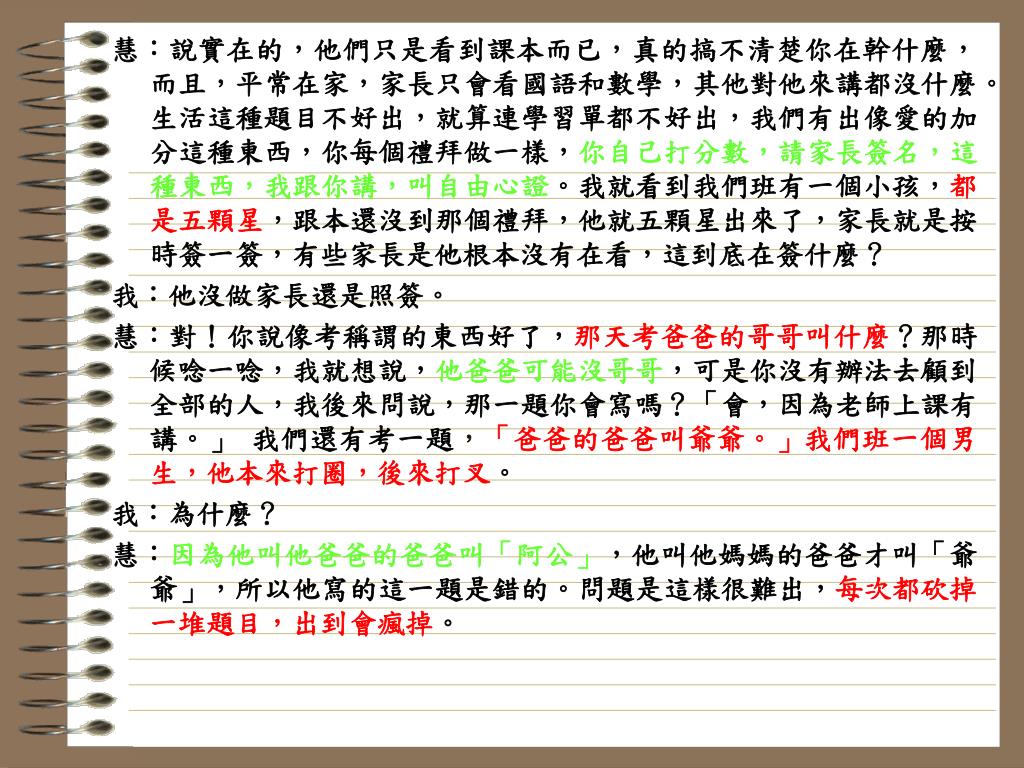 慧：說實在的，他們只是看到課本而已，真的搞不清楚你在幹什麼，
而且，平常在家，家長只會看國語和數學，其他對他來講都沒什麼。
生活這種題目不好出，就算連學習單都不好出，我們有出像愛的加
分這種東西，你每個禮拜做一樣，你自己打分數，請家長簽名，這
種東西，我跟你講，叫自由心證。我就看到我們班有一個小孩，都
是五顆星，跟本還沒到那個禮拜，他就五顆星出來了，家長就是按
時簽一簽，有些家長是他根本沒有在看，這到底在簽什麼？
我：他沒做家長還是照簽。
慧：對！你說像考稱謂的東西好了，那天考爸爸的哥哥叫什麼？那時
候唸一唸，我就想說，他爸爸可能沒哥哥，可是你沒有辦法去顧到
全部的人，我後來問說，那一題你會寫嗎？「會，因為老師上課有
講。」 我們還有考一題，「爸爸的爸爸叫爺爺。」我們班一個男
生，他本來打圈，後來打叉。
我：為什麼？
慧：因為他叫他爸爸的爸爸叫「阿公」，他叫他媽媽的爸爸才叫「爺
爺」，所以他寫的這一題是錯的。問題是這樣很難出，每次都砍掉
一堆題目，出到會瘋掉。